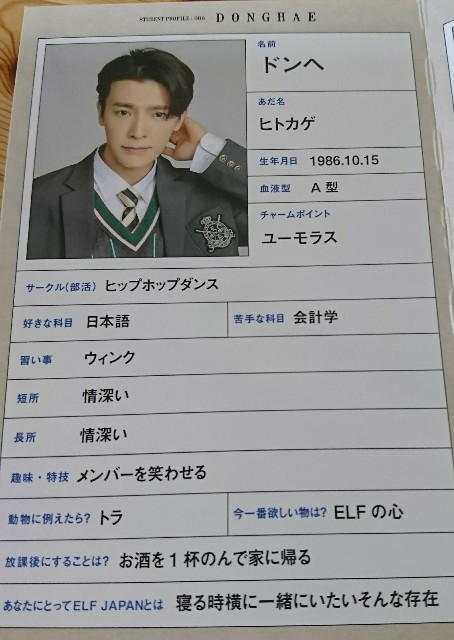 STUDENT PROFILE : 006 DONGHAE
名前
ドンヘ
あだ名
ヒトカゲ
生年月日 1986.10.15
血液型 A型
チャームポイント
ユーモラス
サークル(部活) ヒップホップダンス
好きな科目 日本語 苦手な科目 会計学
習い事 ウィンク
短所 情深い
長所 情深い
趣味・特技 メンバーを笑わせる
動物に例えたら? トラ 今一番欲しい物は? ELFの心
放課後にすることは? お酒を1杯のんで家に帰る
あなたにとってELF JAPANとは 寝る時横に一緒にいたいそんな存在